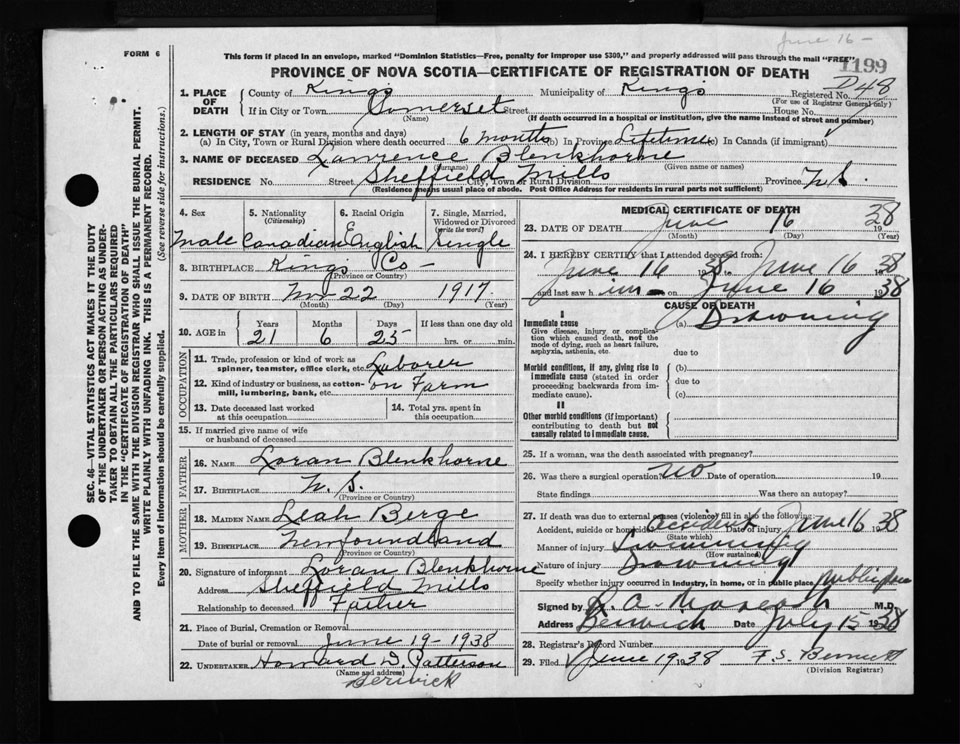 June 16-
FORM 6
This form if placed in an envelope, marked "Dominion Statistics—Free, penalty for improper use $300," and properly addressed will pass through the mail "FREE"
1199
PROVINCE OF NOVA SCOTIA—CERTIFICATE OF REGISTRATION OF DEATH
1. PLACE OF DEATH County of Kings Municipality of Kings Registered No. D48
(For use of Registrar General only)
If in City or Town Somerset Street House No.
(Name) (If death occurred in a hospital or institution, give the name instead of street and number)
2. LENGTH OF STAY (in years, months and days)
(a) In City, Town or Rural Division where death occurred 6 months (b) In Province Lifetime (c) In Canada (if immigrant)
3. NAME OF DECEASED Lawrence Blenkhorne
(Surname) (Given name or names)
RESIDENCE No. Street Sheffield Mills City, Town or Rural Division Province N.S.
(Residence means usual place of abode. Post Office Address for residents in rural parts not sufficient)
4. Sex 5. Nationality (Citizenship) 6. Racial Origin 7. Single, Married, Widowed or Divorced (write the word)
Male Canadian English Single
8. BIRTHPLACE Kings Co-
(Province or Country)
9. DATE OF BIRTH Nov 22 1917
(Month) (Day) (Year)
10. AGE in Years Months Days If less than one day old
21 6 25 hrs. or min.
OCCUPATION
11. Trade, profession or kind of work as spinner, teamster, office clerk, etc. Laborer
12. Kind of industry or business, as cotton-mill, lumbering, bank, etc. on Farm
13. Date deceased last worked at this occupation
14. Total yrs. spent in this occupation
15. If married give name of wife or husband of deceased
FATHER
16. NAME Loran Blenkhorne
17. BIRTHPLACE N.S.
(Province or Country)
MOTHER
18. MAIDEN NAME Leah Berge
19. BIRTHPLACE Newfoundland
(Province or Country)
20. Signature of informant Loran Blenkhorne
Address Sheffield Mills
Relationship to deceased Father
21. Place of Burial, Cremation or Removal
Date of burial or removal June 19-1938
22. UNDERTAKER Howard D. Patterson
(Name and address)
Berwick
MEDICAL CERTIFICATE OF DEATH
23. DATE OF DEATH June 16 1938
(Month) (Day) (Year)
24. I HEREBY CERTIFY that I attended deceased from:
June 16 1938 to June 16 1938
and last saw him on June 16 1938
CAUSE OF DEATH
I
Immediate cause (a) Drowning
Give disease, injury or complication which caused death, not the mode of dying, such as heart failure, asphyxia, asthenia, etc.
due to
Morbid conditions, if any, giving rise to immediate cause (stated in order proceeding backwards from immediate cause). (b)
due to
(c)
II
Other morbid conditions (if important) contributing to death but not causally related to immediate cause.
25. If a woman, was the death associated with pregnancy?
26. Was there a surgical operation? no Date of operation 19
State findings Was there an autopsy?
27. If death was due to external causes (violence) fill in also the following:
Accident, suicide or homicide Accident Date of injury June 16 1938
(State which)
Manner of injury Swimming
(How sustained)
Nature of injury Drowning
Specify whether injury occurred in industry, in home, or in public place public place
Signed by M.D.
Address Berwick Date July 15 1938
28. Registrar's Record Number
29. Filed June 19 1938 F.S. Bennett
(Division Registrar)
SEC. 46—VITAL STATISTICS ACT MAKES IT THE DUTY
OF THE UNDERTAKER OR PERSON ACTING AS UNDER-
TAKER TO OBTAIN ALL THE PARTICULARS REQUIRED
IN THE "CERTIFICATE OF REGISTRATION OF DEATH"
AND TO FILE THE SAME WITH THE DIVISION REGISTRAR WHO SHALL ISSUE THE BURIAL PERMIT.
WRITE PLAINLY WITH UNFADING INK. THIS IS A PERMANENT RECORD.
Every item of information should be carefully supplied. (See reverse side for instructions).